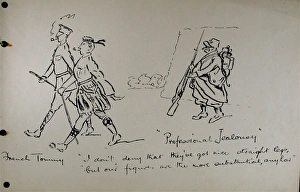 "Professional Jealousy"
French Tommy "I don't deny that they've got nice straight legs,
but our figures are the more substantial, anyhow